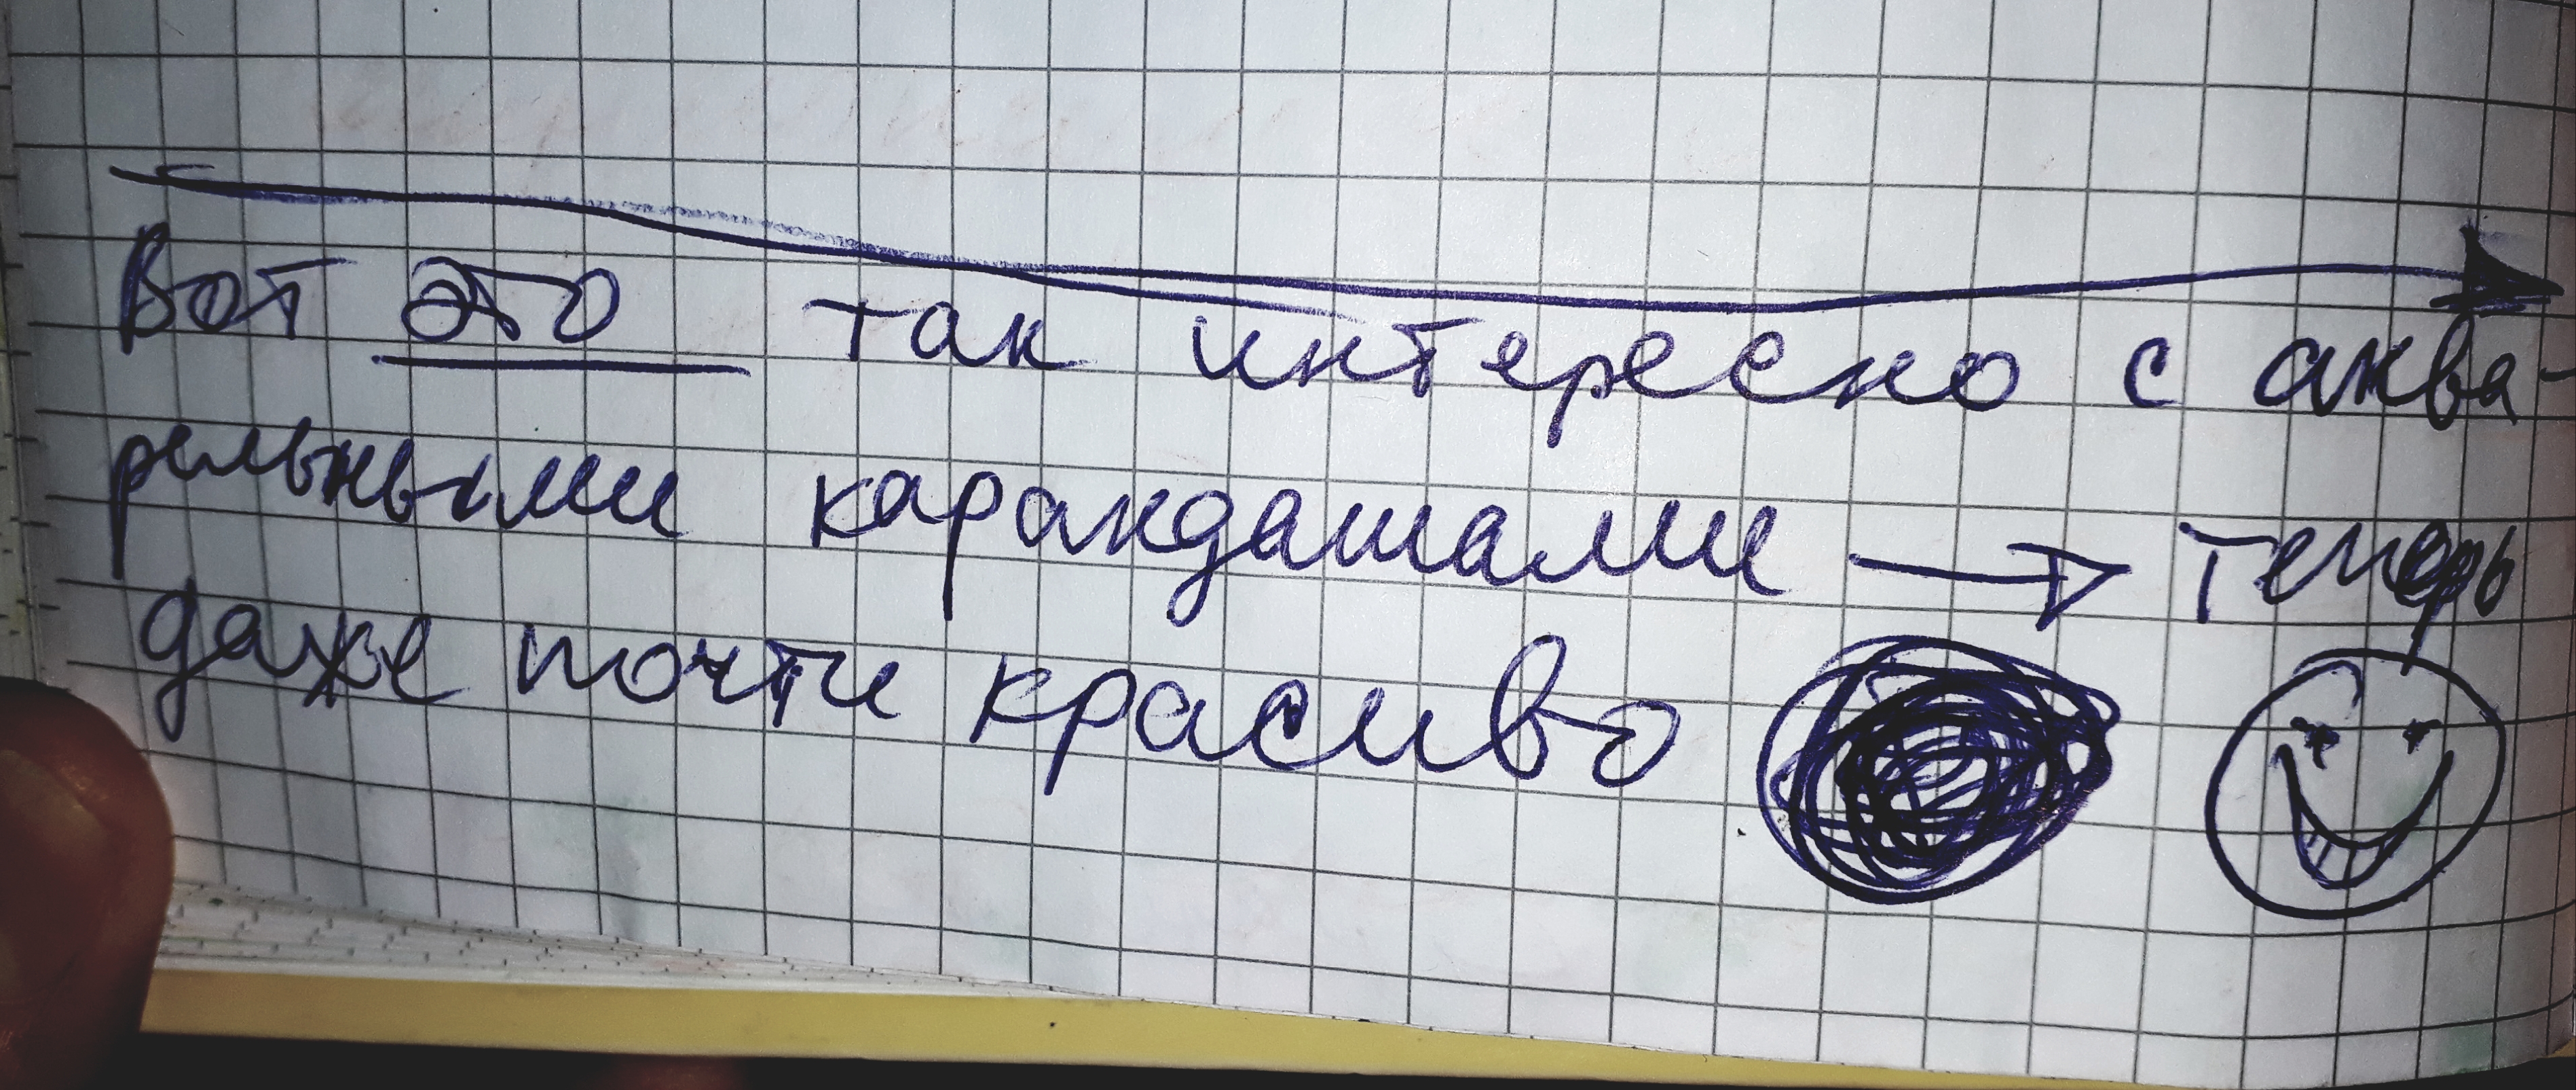 Вот это так интересно с аква-
рельными карандашами → теперь
даже почти красиво